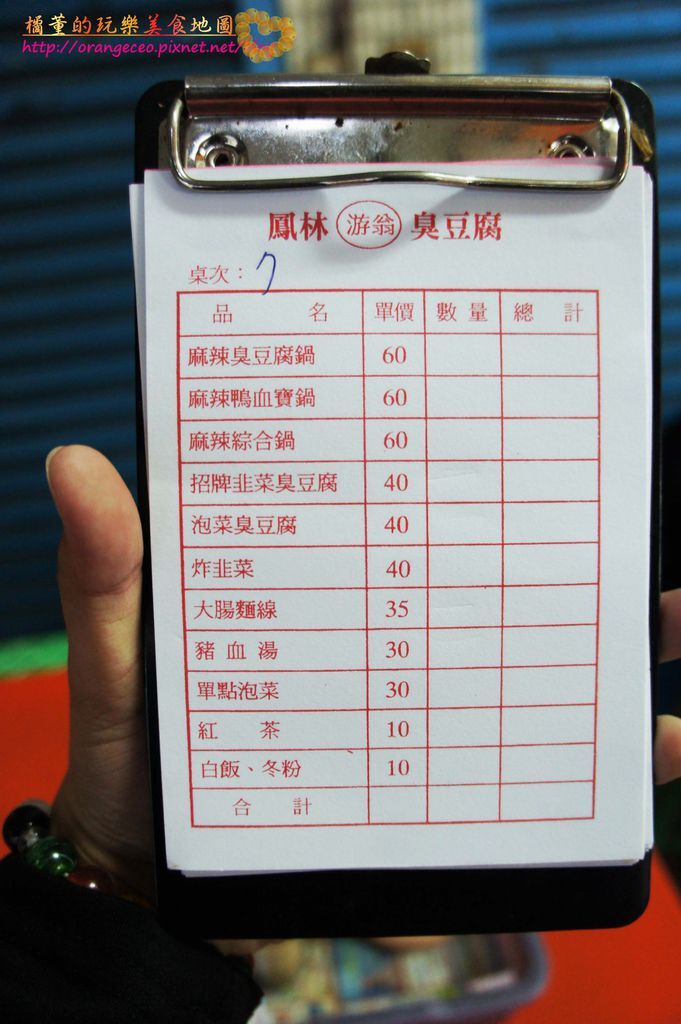 橘董的玩樂美食地圖
http://orangeceo.pixnet.net/
鳳林 游翁 臭豆腐
桌次：7
品 名 單價 數量 總計
麻辣臭豆腐鍋 60
麻辣鴨血寶鍋 60
麻辣綜合鍋 60
招牌韭菜臭豆腐 40
泡菜臭豆腐 40
炸韭菜 40
大腸麵線 35
豬血湯 30
單點泡菜 30
紅茶 10
白飯、冬粉 10
合計